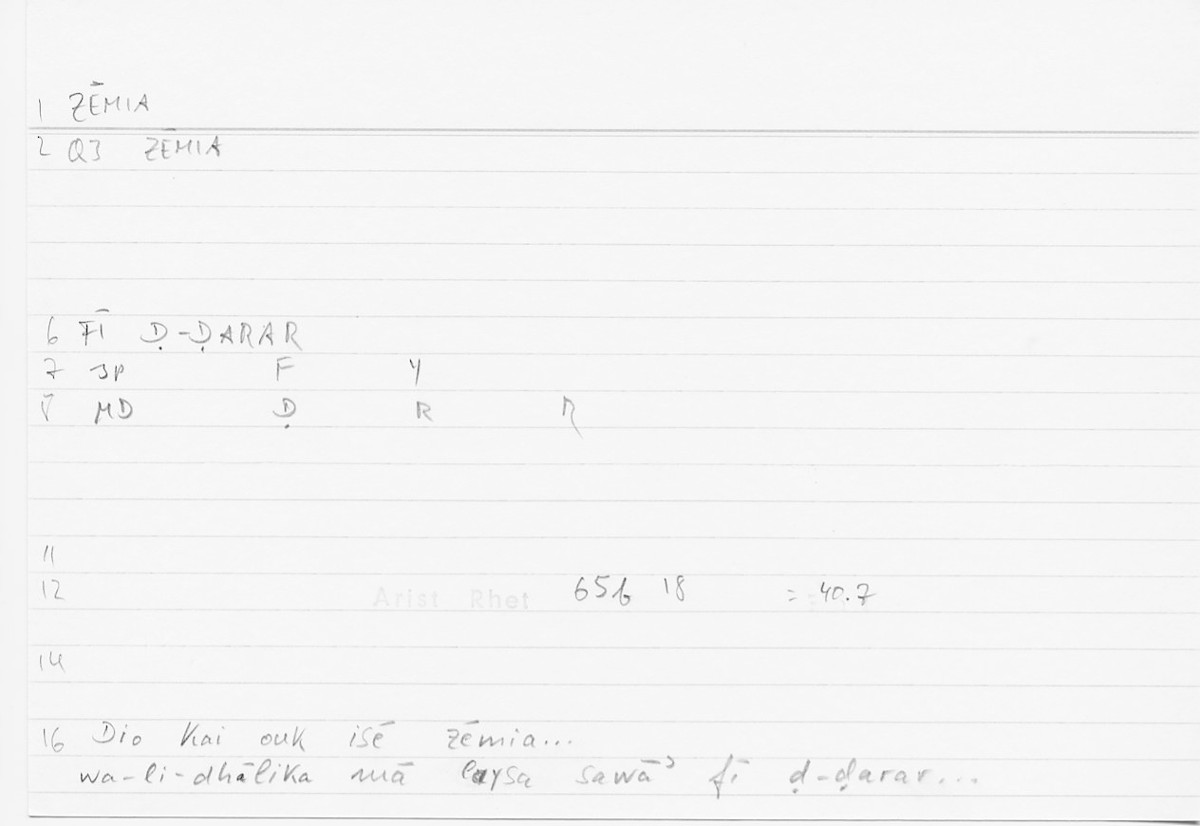 1 ZĒMIA
2 Q3 ZĒMIA
6 FĪ Ḍ-ḌARAR
7 3P F Y
8 MD Ḍ R R
11
12 Arist Rhet 65b 18 = 40.7
14
16 Dio kai ouk isē zēmia...
wa-li-dhālika mā laysa sawāʾ fī ḍ-ḍarar...